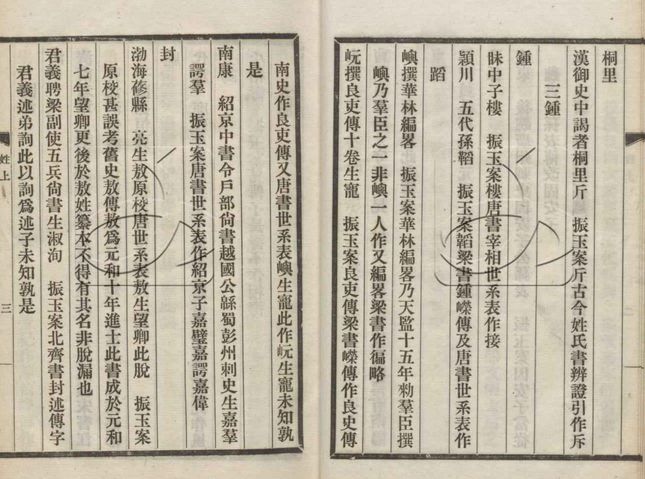 桐里
漢御史中謁者桐里斤　振玉案斤古今姓氏書辨證引作斥
三鍾
鍾
昧中子樓　振玉案樓唐書宰相世系表作接
潁川　五代孫韜　振玉案韜梁書鍾嶸傳及唐書世系表作
蹈
嶼撰華林編畧　振玉案華林編畧乃天監十五年勑羣臣撰
嶼乃羣臣之一非嶼一人作又編畧梁書作徧略
岏撰良吏傳十卷生寵　振玉案良吏傳梁書嶸傳作良史傳
南史作良吏傳又唐書世系表嶼生寵此作岏生寵未知孰
是
南康　紹京中書令戶部尙書越國公緜蜀彭州刺史生嘉羣
諤羣　振玉案唐書世系表作紹京子嘉璧嘉諤嘉偉
封
渤海蓨縣　亮生敖原校唐世系表敖生望卿此脫　振玉案
原校甚誤考舊史敖傳敖爲元和十年進士此書成於元和
七年望卿更後於敖姓纂本不得有其名非脫漏也
君義聘梁副使五兵尙書生淑洵　振玉案北齊書封述傳字
君義述弟詢此以詢爲述子未知孰是
姓上
三